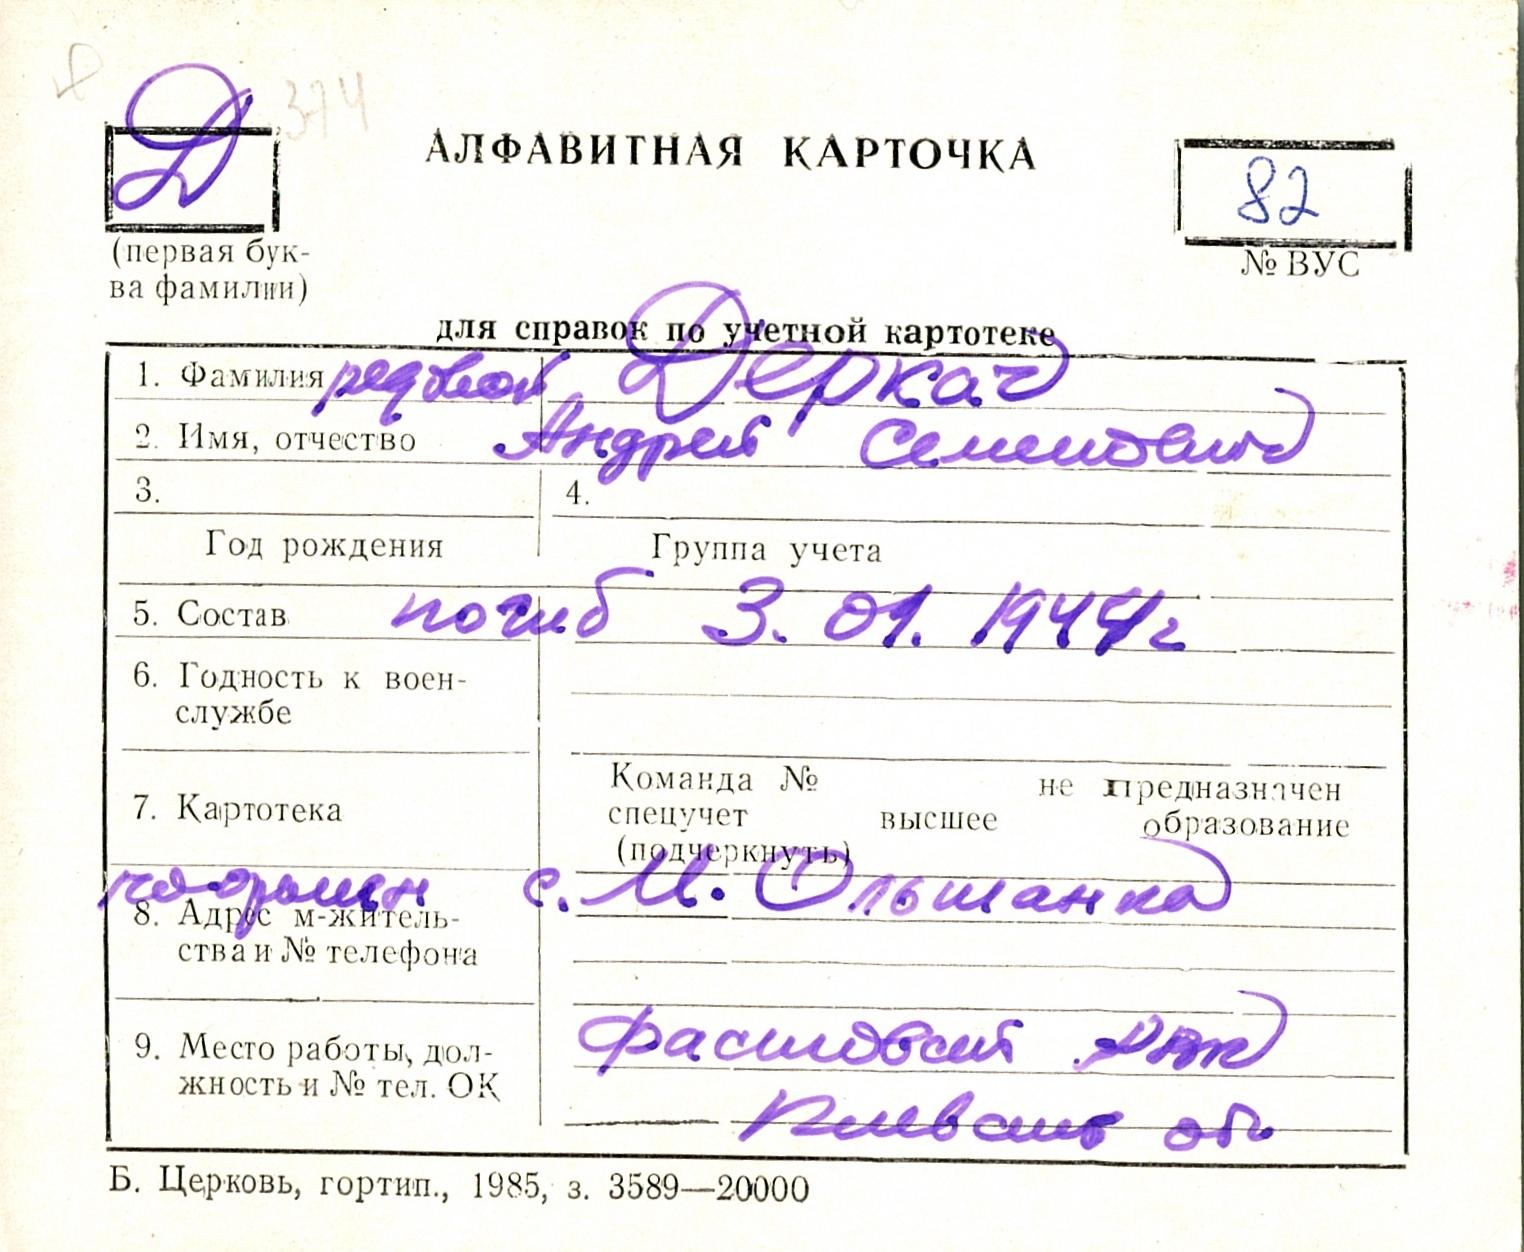 Д 374
АЛФАВИТНАЯ КАРТОЧКА
82
(первая бук-
ва фамилии)
№ ВУС
для справок по учетной картотеке
1. Фамилия рядовой Деркач
2. Имя, отчество Андрей Семенович
3. 4.
Год рождения Группа учета
5. Состав погиб 3.01.1944г
6. Годность к воен-
службе
7. Картотека
Команда № не предназначен
спецучет высшее образование
(подчеркнуть)
похоронен с. М. Ольшанка
8. Адрес м-житель-
ства и № телефона
Фастовский р-н
9. Место работы, дол-
жность и № тел. ОК
Киевской об.
Б. Церковь, гортип., 1985, з. 3589—20000